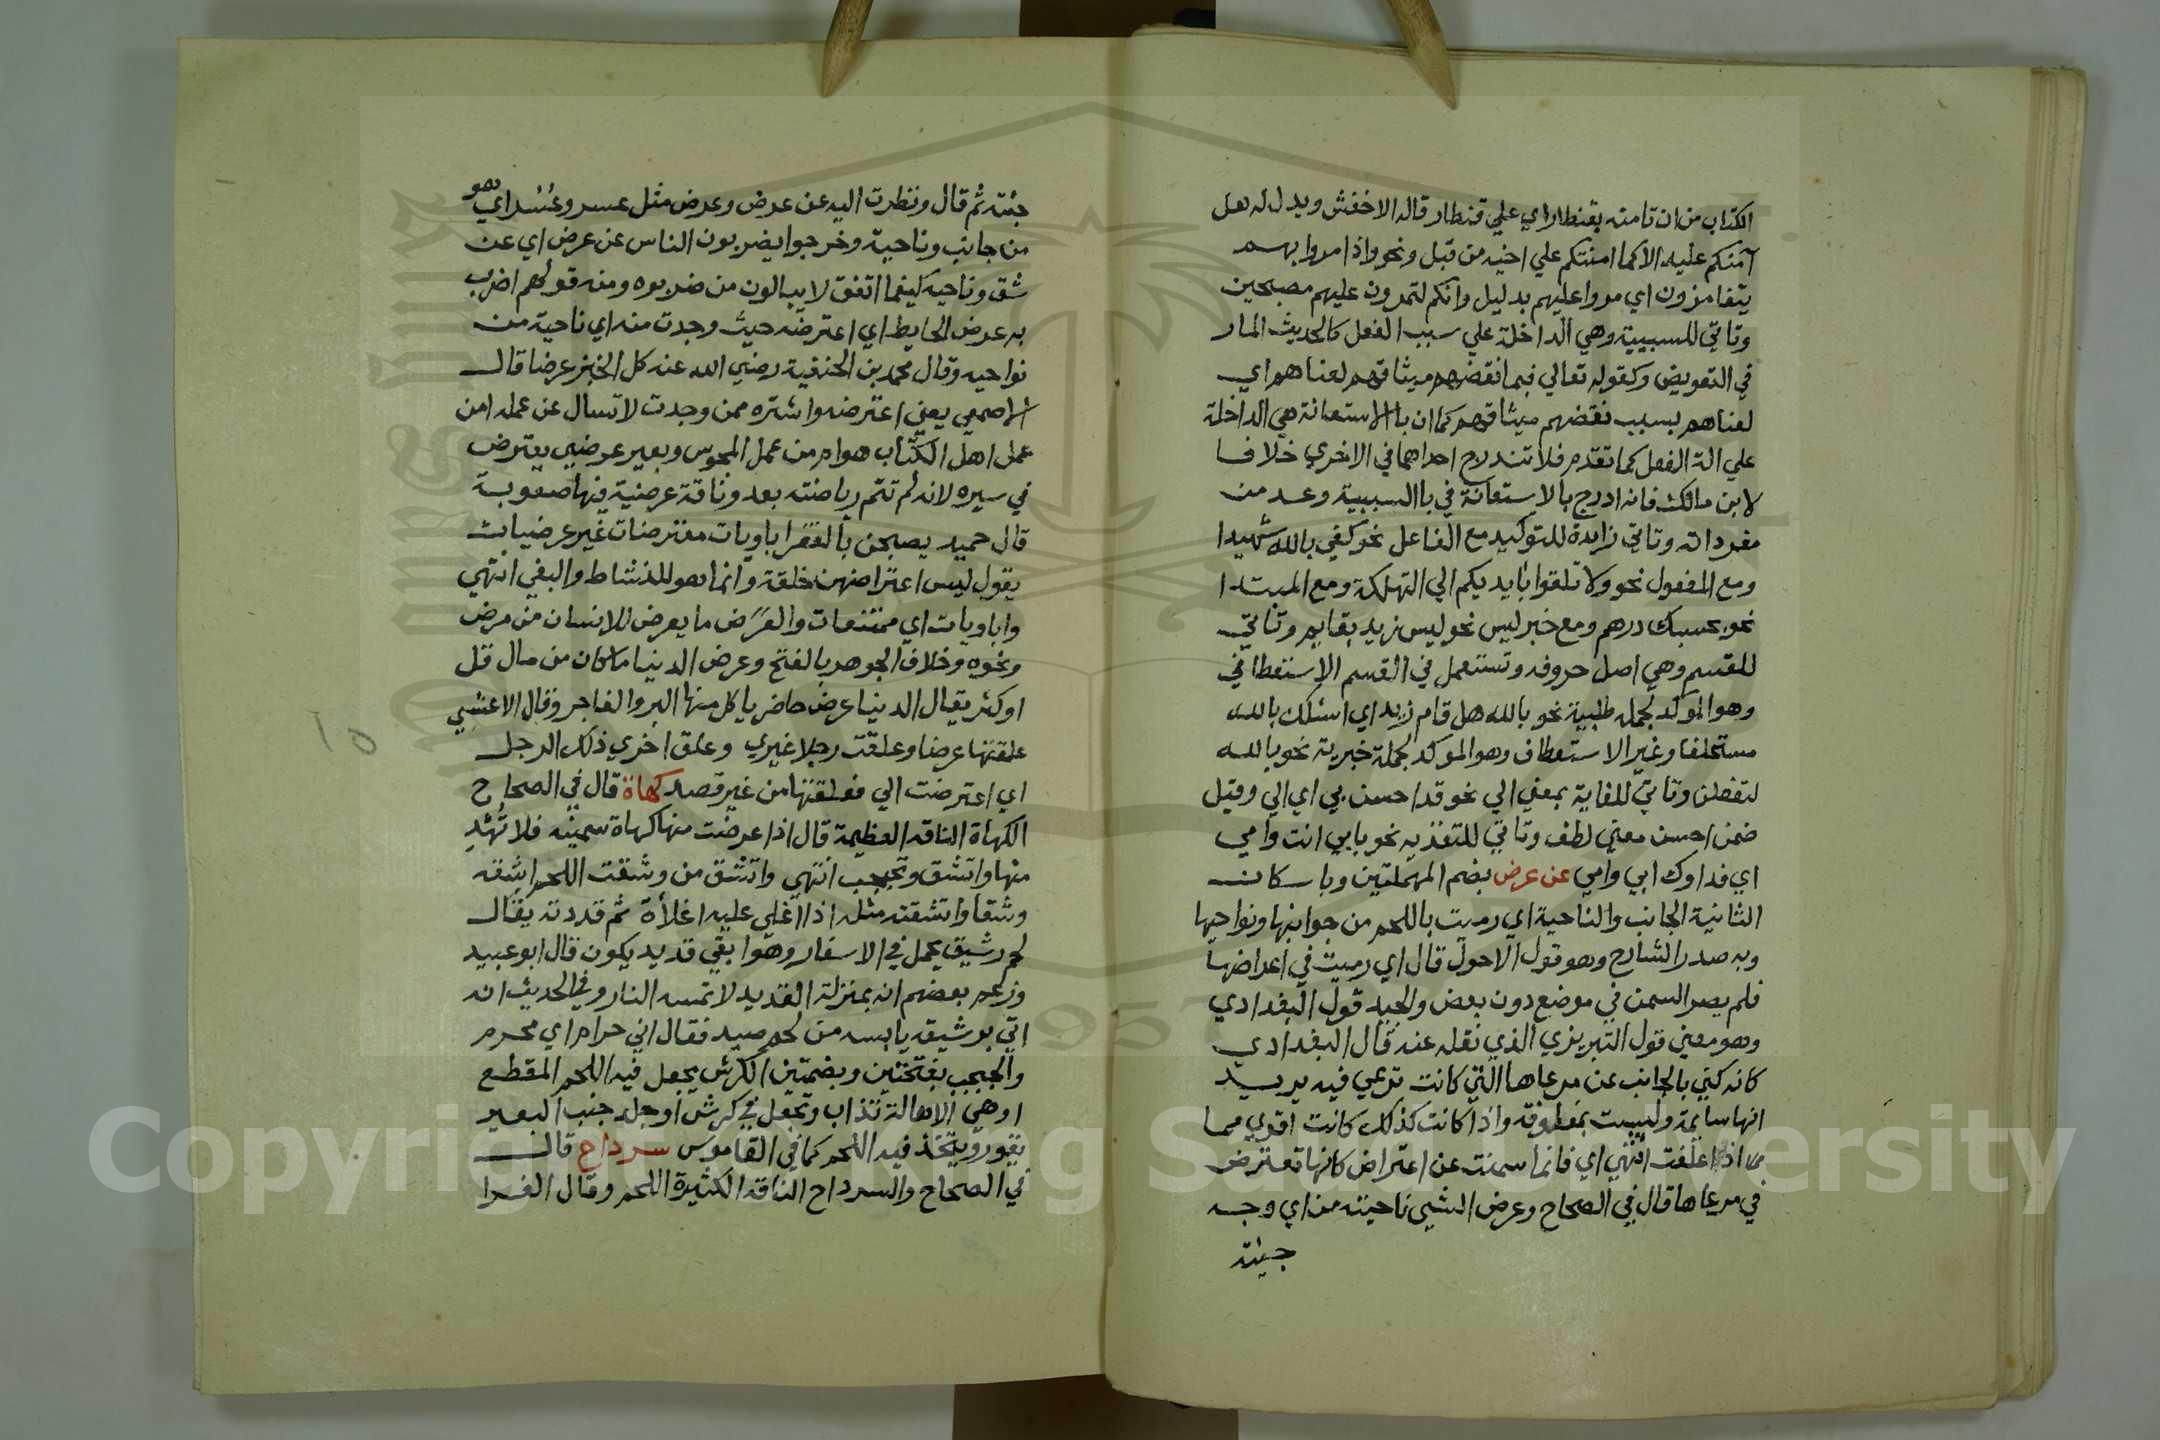 الكتاب من ان تامنه بقنطار اي علي قنطار قاله الاخفش ويدل له هل
آمنكم عليه الا كما امنتكم علي اخيه من قبل ونحو واذا مروا بهم
يتغامزون اي مروا عليهم بدليل وانكم لتمرون عليهم مصبحين
وتاتي للسببية وهي الداخلة علي سبب الفعل كالحديث المار
في التعويض وكقوله تعالي فبما نقضهم ميثاقهم لعناهم اي
لعناهم بسبب نقضهم ميثاقهم كما ان با الاستعانة هي الداخلة
علي الة الفعل كما تقدم فلا تندرج احداهما في الاخري خلافا
لابن مالك فانه ادرج با الاستعانة في با السببية وعد من
مفرداته وتاتي زايدة للتوكيد مع الفاعل نحو كفي بالله شهيدا
ومع المفعول نحو ولا تلقوا بايديكم الي التهلكة ومع المبتدا
نحو بحسبك درهم ومع خبر ليس نحو ليس زيد بقايم وتاتي
للقسم وهي اصل حروفه وتستعمل في القسم الاستعطافي
وهو الموكد لجملة طلبية نحو بالله هل قام زيد اي اسئلك بالله
مستحلفا وغير الاستعطاف وهو الموكد لجملة خبرية نحو بالله
لتفعلن وتاتي للغاية بمعني الي نحو قد احسن بي اي الي وقيل
ضمن احسن معني لطف وتاتي للتفدية نحو بابي انت وامي
اي فداوك ابي وامي عن عرض بضم المهملتين وباسكان
الثانية الجانب والناحية اي رميت باللحم من جوانبها ونواحيها
وبه صدر الشارح وهو قول الاحول قال اي رميت في اعراضها
فلم يصر السمن في موضع دون بعض والجيد قول البغدادي
وهو معني قول التبريزي الذي نقله عنه قال البغدادي
كانه كني بالجانب عن مرعاها التي كانت ترعي فيه يريد
انها سايمة وليست بمعلوفة واذا كانت كذلك كانت اقوي مما
اذا اعلفت انتهي اي فانما سمنت عن اعتراض كانها تعترض
في مرعاها قال في الصحاح وعرض الشي ناحيته من اي وجه
جيته
جئته ثم قال ونظرت اليه عن عرض وعرض مثل عسر وعسر اي هو
من جانب وناحية وخرجوا يضربون الناس عن عرض اي عن
شق وناحية كيفما اتفق لا يبالون من ضربوه ومنه قولهم اضرب
به عرض الحايط اي اعترضه حيث وجدت منه اي ناحية من
نواحيه وقال محمد بن الحنفية رضي الله عنه كل الخبز عرضا قال
الاصمعي يعني اعترضه واشتره ممن وجدت لا تسال عن عمله امن
عمل اهل الكتاب هو ام من عمل المجوس وبعير عرضي يعترض
في سيره لانه لم تتم رياضته بعد وناقة عرضية فيها صعوبة
قال حميد يصبحن بالقفرا باويات معترضات غير عرضيات
يقول ليس اعتراضهن خلقة وانما هو للنشاط والبغي انتهي
واباويات اي ممتنعات والعرض ما يعرض للانسان من مرض
ونحوه وخلاف الجوهر بالفتح وعرض الدنيا ما كان من مال قل
او كثر يقال الدنيا عرض حاضر ياكل منها البر والفاجر وقال الاعشي
علقتها عرضا وعلقت رجلا غيري وعلق اخري ذلك الرجل
اي اعترضت الي فعلقتها من غير قصد كهاة قال في الصحاح
الكهاة الناقه العظيمة قال اذا عرضت منها كهاة سمينه فلا تهد
منها واتشق وتجبجب انتهي واتشق من وشقت اللحم اشقه
وشقا واتشقته مثله اذا اغلي عليه اغلاة ثم قددته يقال
لحم وشيق يحمل في الاسفار وهو ابقي قديد يكون قال ابو عبيد
وزعم بعضهم انه بمنزلة القديد لا تمسه النار وفي الحديث انه
اتي بوشيقه يابسه من لحم صيد فقال اني حرام اي محرم
والجبجب بفتحتين وبضمتين الكرش يجعل فيه اللحم المقطع
او هي الاهالة تذاب وتجعل في كرش او جلد جنب البعير
يقور ويتخذ فيه اللحم كما في القاموس سرداح قال
في الصحاح والسرداح الناقه الكثيرة اللحم وقال الفرا
١٥
Copyright © King Saud University